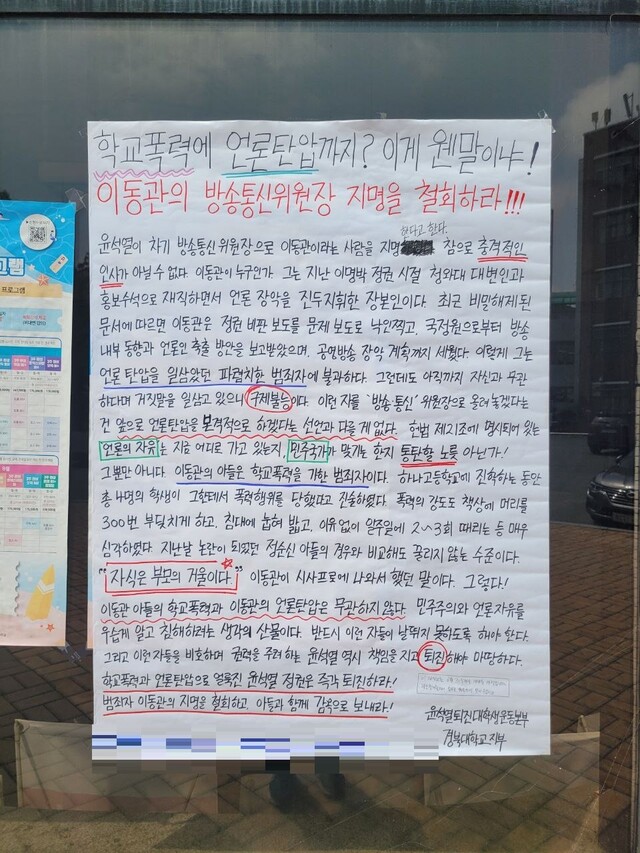 학교폭력에 언론탄압까지? 이게 웬말이냐!
이동관의 방송통신위원장 지명을 철회하라!!!
한다고 한다.
윤석열이 차기 방송통신위원장으로 이동관이라는 사람을 지명 참으로 충격적인
인사가 아닐 수 없다. 이동관이 누구인가. 그는 지난 이명박 정권 시절 청와대 대변인과
홍보수석으로 재직하면서 언론 장악을 진두지휘한 장본인이다. 최근 비밀해제된
문서에 따르면 이동관은 정권 비판 보도를 문제 보도로 낙인찍고, 국정원으로부터 방송
내부 동향과 언론인 축출 방안을 보고받았으며, 공영방송 장악 계획까지 세웠다. 이렇게 그는
언론 탄압을 일삼았던 파렴치한 범죄자에 불과하다. 그런데도 아직까지 자신과 무관
하다며 거짓말을 일삼고 있으니 구제불능이다. 이런 자를 '방송통신'위원장으로 올려놓겠다는
건 앞으로 언론탄압을 본격적으로 하겠다는 선언과 다를 게 없다. 헌법 제21조에 명시되어 있는
언론의 자유는 지금 어디로 가고 있는지, 민주국가가 맞기는 한지 통탄할 노릇 아닌가!
그뿐만 아니다. 이동관의 아들은 학교폭력을 가한 범죄자이다. 하나고등학교에 진학하는 동안
총 4명의 학생이 그한테서 폭력행위를 당했다고 진술하였다. 폭력의 강도도 책상에 머리를
300번 부딪치게 하고, 침대에 눕혀 밟고, 이유 없이 일주일에 2~3회 때리는 등 매우
심각하였다. 지난날 논란이 되었던 정순신 아들의 경우와 비교해도 꿀리지 않는 수준이다.
"자식은 부모의 거울이다." 이동관이 시사프로에 나와서 했던 말이다. 그렇다!
이동관 아들의 학교폭력과 이동관의 언론탄압은 무관하지 않다. 민주주의와 언론자유를
우습게 알고 침해하려는 생각의 산물이다. 반드시 이런 자들이 날뛰지 못하도록 해야 한다.
그리고 이런 자들을 비호하며 권력을 주려 하는 윤석열 역시 책임을 지고 퇴진해야 마땅하다.
학교폭력과 언론탄압으로 얼룩진 윤석열 정권은 즉각 퇴진하라!
범죄자 이동관의 지명을 철회하고, 아들과 함께 감옥으로 보내라!
윤석열퇴진대학생운동본부
경북대학교지부
프로그램